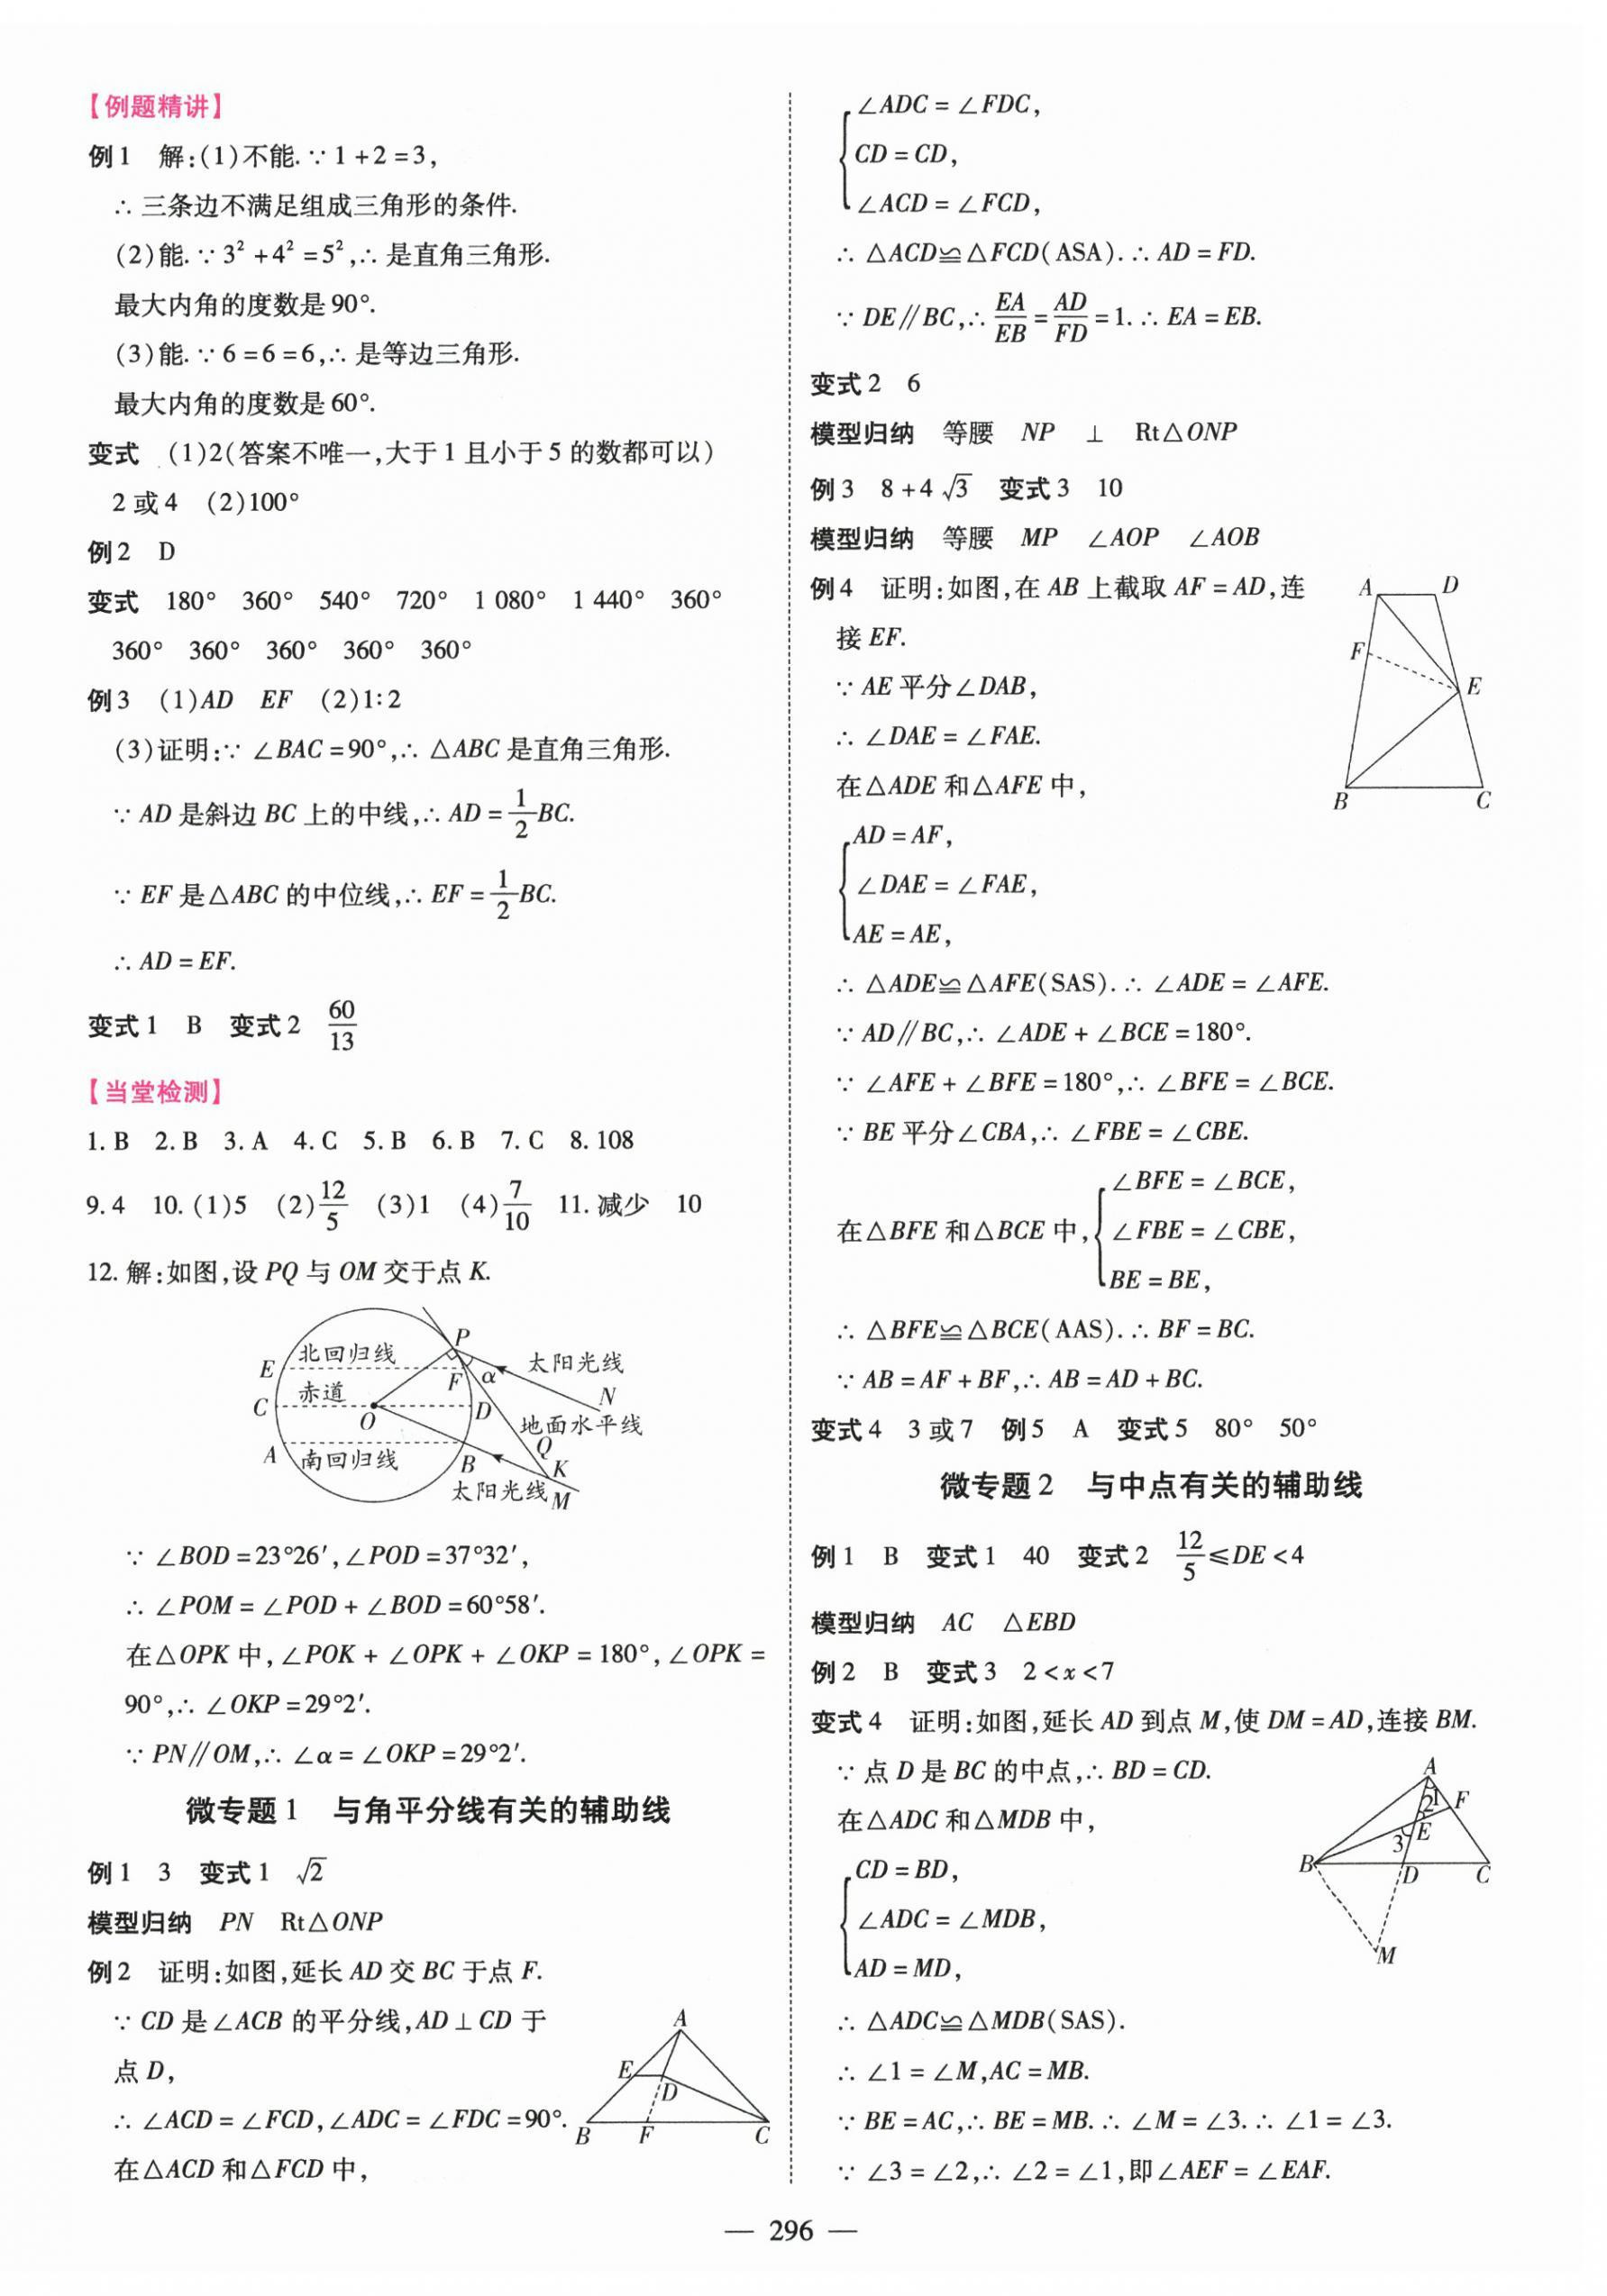 【例题精讲】
例1 解:(1)不能.∵1+2=3,
∴三条边不满足组成三角形的条件.
(2)能.∵3²+4²=5²,∴是直角三角形.
最大内角的度数是90°.
(3)能.∵6=6=6,∴是等边三角形.
最大内角的度数是60°.
变式 (1)2(答案不唯一,大于1且小于5的数都可以)
2或4 (2)100°
例2 D
变式 180° 360° 540° 720° 1 080° 1 440° 360°
360° 360° 360° 360° 360°
例3 (1)AD EF (2)1:2
(3)证明:∵∠BAC=90°,∴△ABC是直角三角形.
∵AD是斜边BC上的中线,∴AD=1/2BC.
∵EF是△ABC的中位线,∴EF=1/2BC.
∴AD=EF.
变式1 B 变式2 60/13
【当堂检测】
1.B 2.B 3.A 4.C 5.B 6.B 7.C 8.108
9.4 10.(1)5 (2)12/5 (3)1 (4)7/10 11.减少 10
12.解:如图,设PQ与OM交于点K.
P
北回归线
太阳光线
E
F
α
赤道
N
C
O
D
地面水平线
Q
A
南回归线
B
K
太阳光线
M
∵∠BOD=23°26′,∠POD=37°32′,
∴∠POM=∠POD+∠BOD=60°58′.
在△OPK中,∠POK+∠OPK+∠OKP=180°,∠OPK=
90°,∴∠OKP=29°2′.
∵PN∥OM,∴∠α=∠OKP=29°2′.
微专题1 与角平分线有关的辅助线
例1 3 变式1 √2
模型归纳 PN Rt△ONP
例2 证明:如图,延长AD交BC于点F.
∵CD是∠ACB的平分线,AD⊥CD于
点D,
∴∠ACD=∠FCD,∠ADC=∠FDC=90°.
在△ACD和△FCD中,
A
E
D
B
F
C
∠ADC=∠FDC,
CD=CD,
∠ACD=∠FCD,
∴△ACD≌△FCD(ASA).∴AD=FD.
∵DE∥BC,∴EA/EB=AD/FD=1.∴EA=EB.
变式2 6
模型归纳 等腰 NP ⊥ Rt△ONP
例3 8+4√3 变式3 10
模型归纳 等腰 MP ∠AOP ∠AOB
例4 证明:如图,在AB上截取AF=AD,连
接EF.
∵AE平分∠DAB,
∴∠DAE=∠FAE.
在△ADE和△AFE中,
A
D
F
E
B
C
AD=AF,
∠DAE=∠FAE,
AE=AE,
∴△ADE≌△AFE(SAS).∴∠ADE=∠AFE.
∵AD∥BC,∴∠ADE+∠BCE=180°.
∵∠AFE+∠BFE=180°,∴∠BFE=∠BCE.
∵BE平分∠CBA,∴∠FBE=∠CBE.
∠BFE=∠BCE,
在△BFE和△BCE中,∠FBE=∠CBE,
BE=BE,
∴△BFE≌△BCE(AAS).∴BF=BC.
∵AB=AF+BF,∴AB=AD+BC.
变式4 3或7 例5 A 变式5 80° 50°
微专题2 与中点有关的辅助线
例1 B 变式1 40 变式2 12/5≤DE<4
模型归纳 AC △EBD
例2 B 变式3 2<x<7
变式4 证明:如图,延长AD到点M,使DM=AD,连接BM.
∵点D是BC的中点,∴BD=CD.
在△ADC和△MDB中,
A
1
2
F
3
E
B
D
C
M
CD=BD,
∠ADC=∠MDB,
AD=MD,
∴△ADC≌△MDB(SAS).
∴∠1=∠M,AC=MB.
∵BE=AC,∴BE=MB.∴∠M=∠3.∴∠1=∠3.
∵∠3=∠2,∴∠2=∠1,即∠AEF=∠EAF.
— 296 —